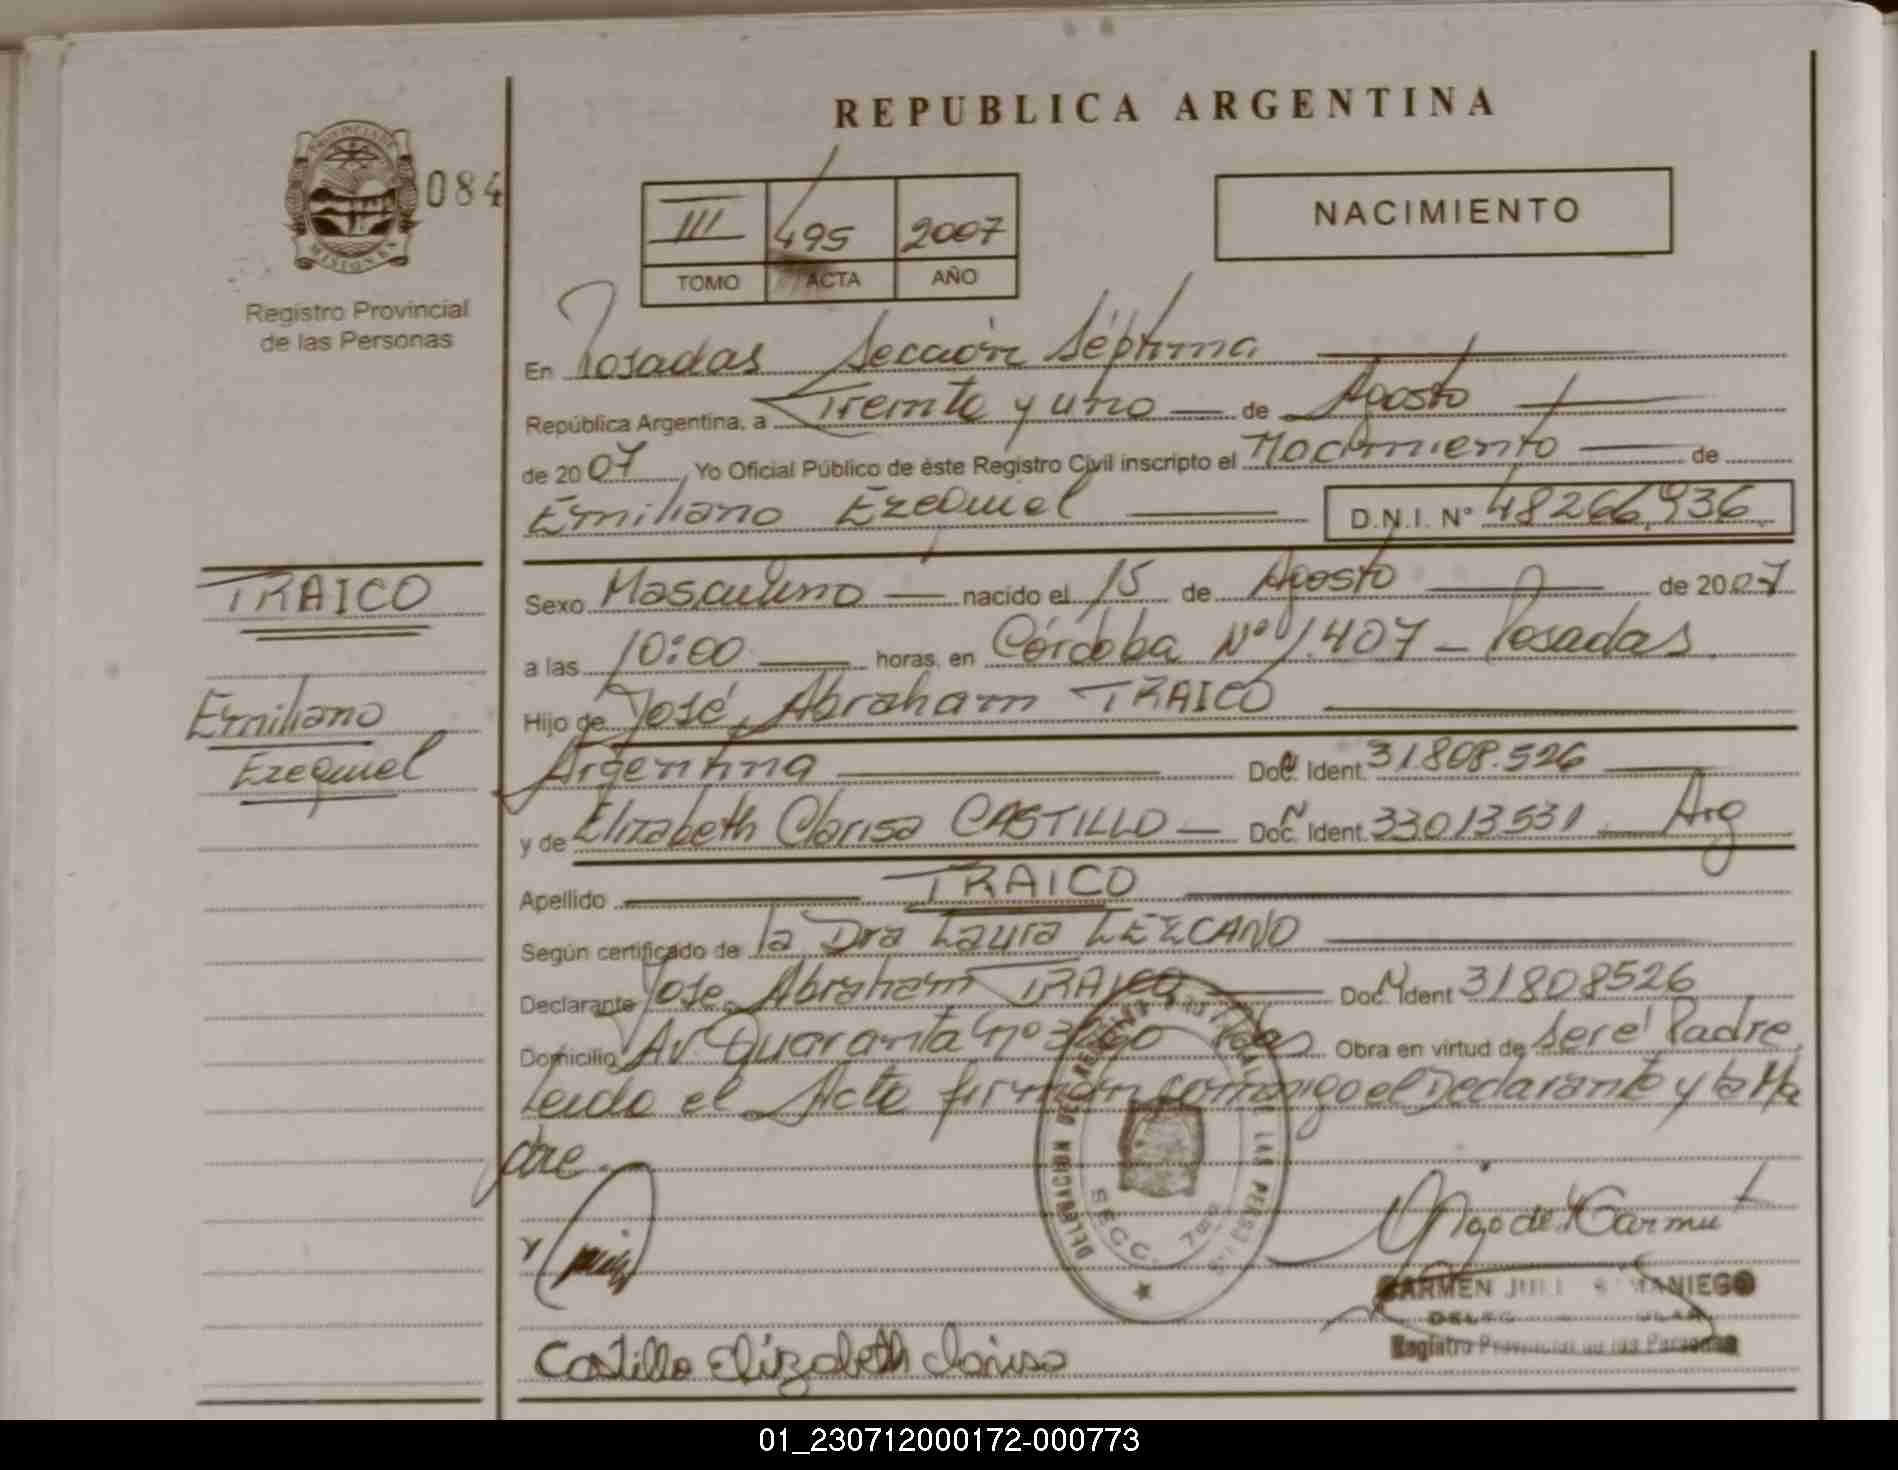 REPUBLICA ARGENTINA
PROVINCIA DE
MISIONES
084
Registro Provincial
de las Personas
III 495 2007
TOMO ACTA AÑO
NACIMIENTO
En Posadas Sección Séptima
República Argentina, a Treinta y uno de Agosto
de 2007, Yo Oficial Público de éste Registro Civil inscripto el Nacimiento de
Emiliano Ezequiel D.N.I. N° 48266.936
TRAICO
Emiliano
Ezequiel
Sexo Masculino nacido el 15 de Agosto de 2007
a las 10:00 horas, en Córdoba N° 1.407 - Posadas.
Hijo de José Abraham TRAICO
Argentina Doc. Ident. 31808.526
y de Elizabeth Clarisa CASTILLO - Doc. Ident. 33013531 Arg
Apellido TRAICO
Según certificado de la Dra Laura LEZCANO
Declarante Jose Abraham TRAICO Doc. Ident 31808526
Domicilio Av Quaranta nº Pdas Obra en virtud de Seré Padre.
Leido el Acta firman conmigo el Declarante y la Ma
dre.
DELEGACION DE LAS PERS
SECC. 7ma
Castillo Elizabeth Clarisa
CARMEN MANIEGO
Registro Provincial de las Personas
01_230712000172-000773